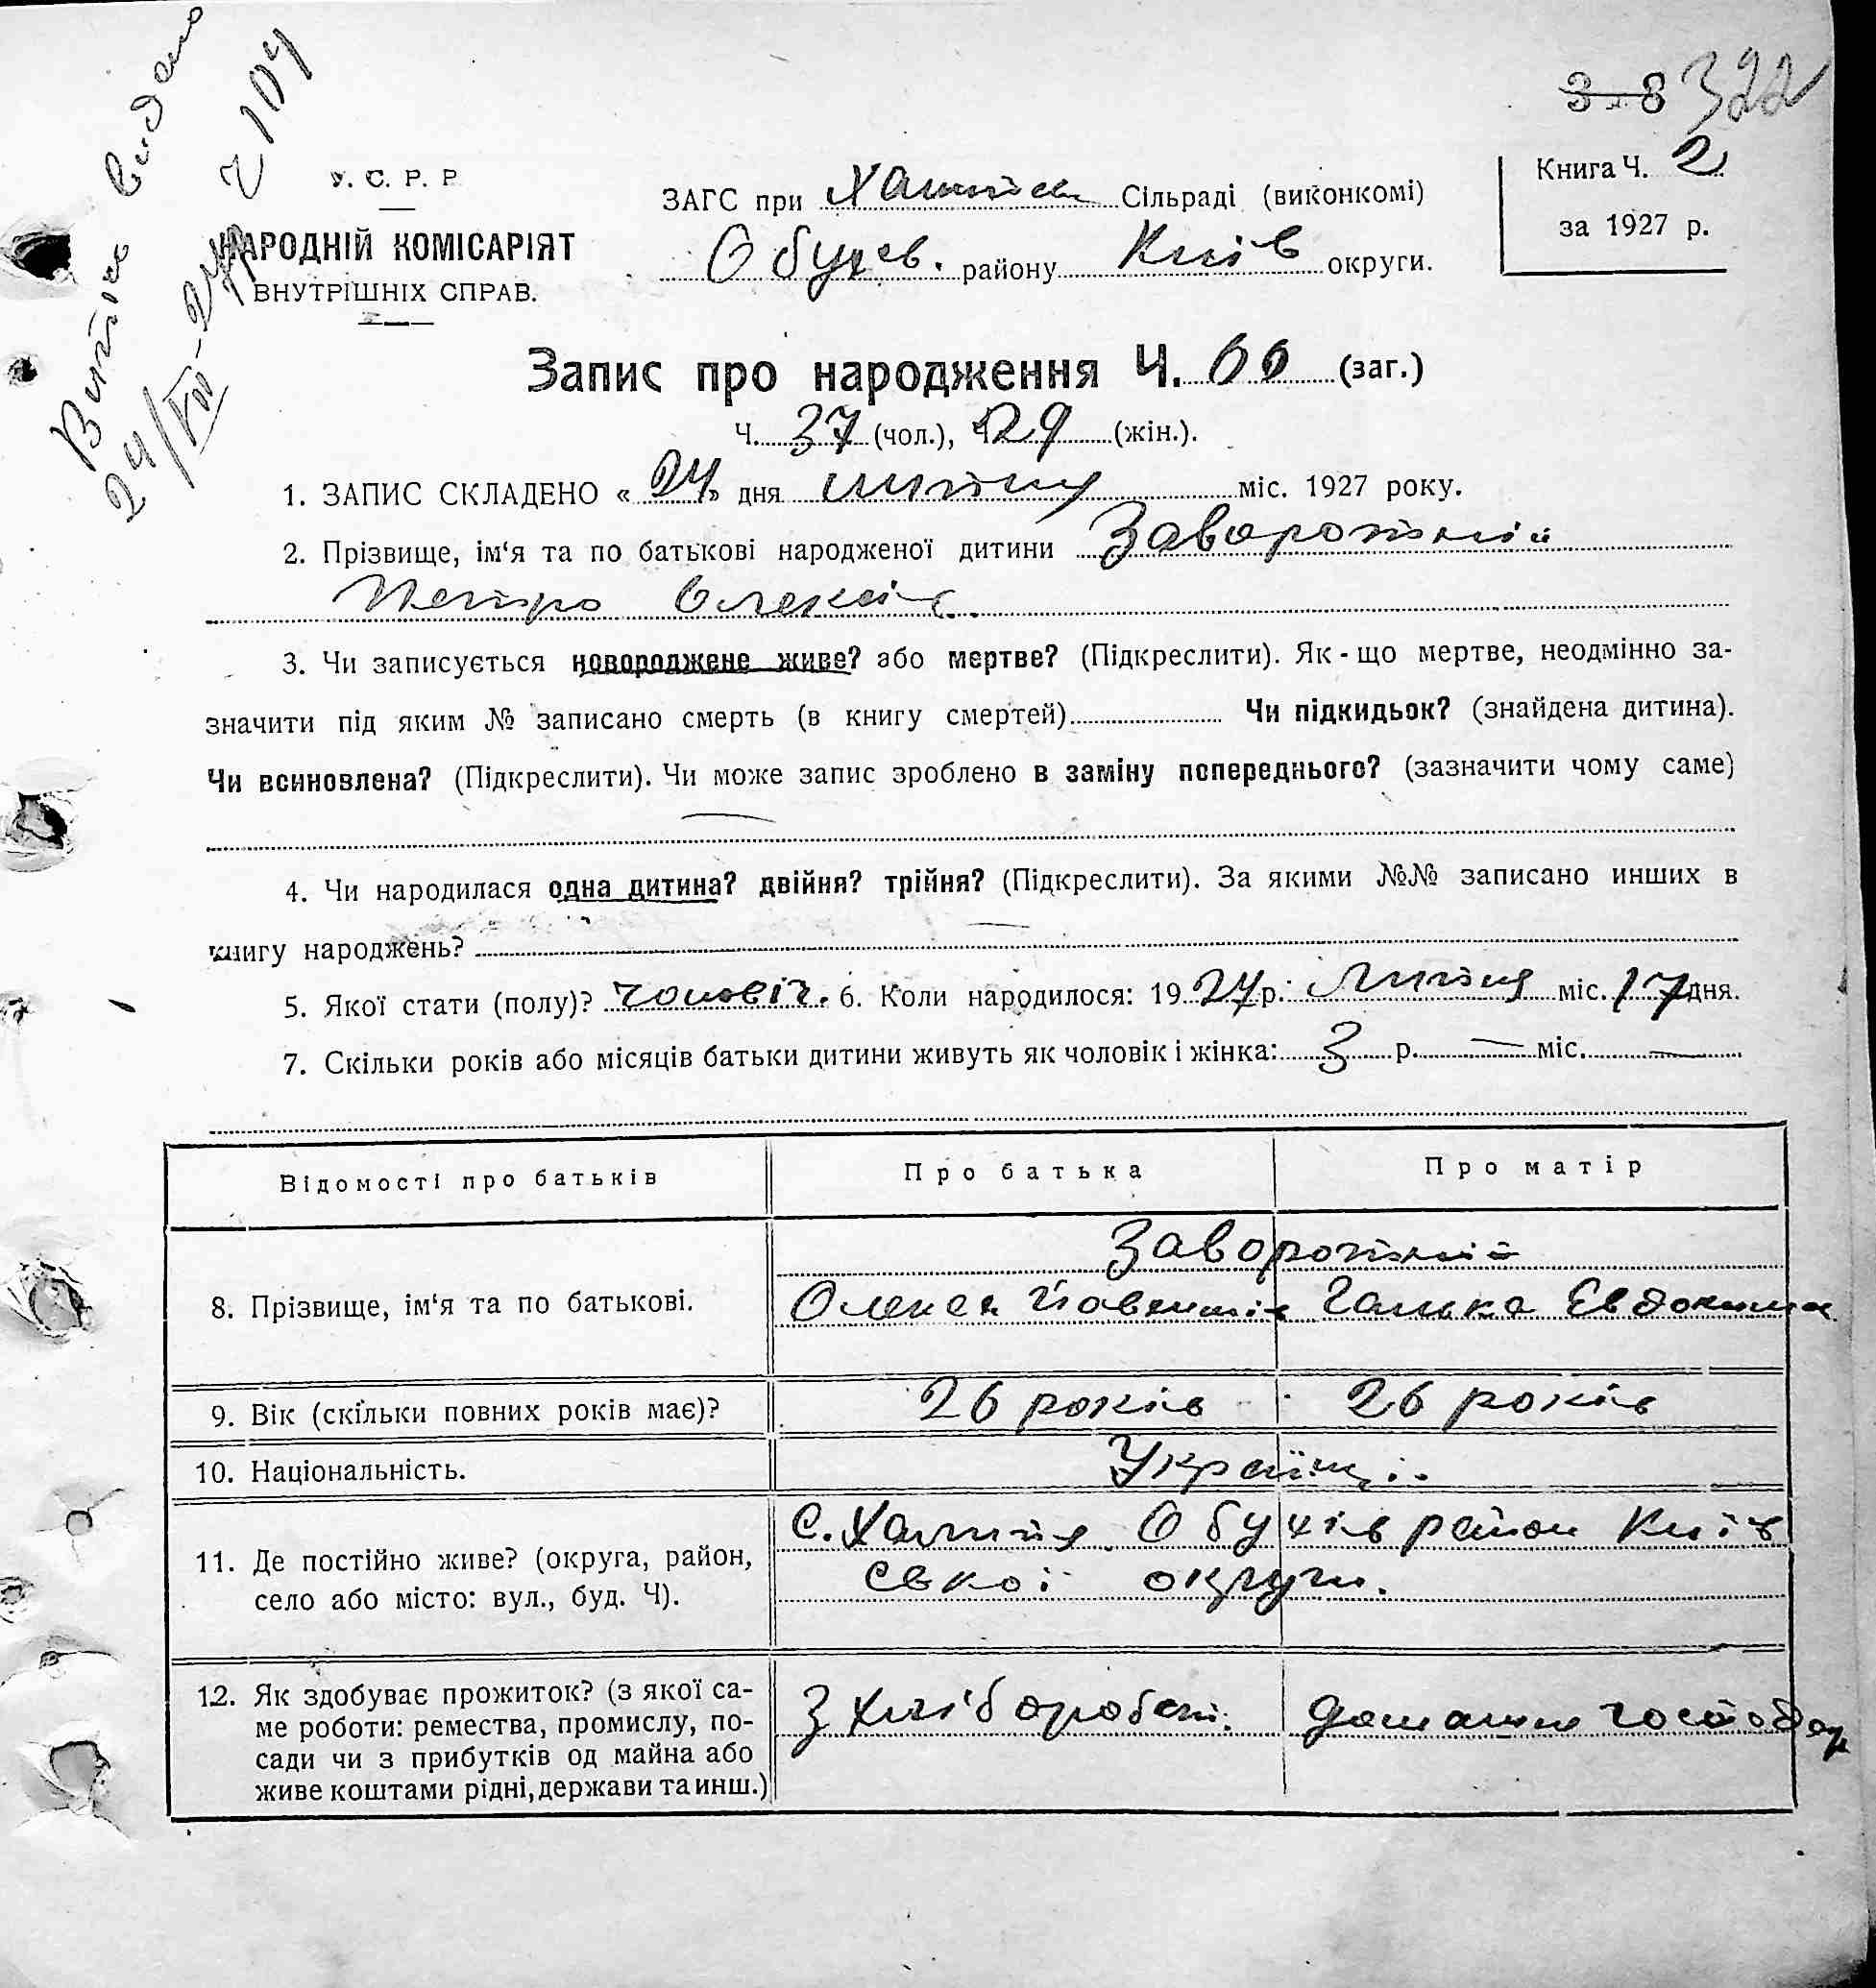 Витяг видано
24/VII-27р ч 104
3 8 322
У. С. Р. Р.
НАРОДНІЙ КОМІСАРІЯТ
ВНУТРІШНІХ СПРАВ.
ЗАГС при Халепській Сільраді (виконкомі)
Обухів. району Київ округи.
Книга Ч. 2
за 1927 р.
Запис про народження Ч. 66 (заг.)
Ч. 37 (чол.), 29 (жін.).
1. ЗАПИС СКЛАДЕНО « 24 » дня липня міс. 1927 року.
2. Прізвище, ім'я та по батькові народженої дитини Заворотній
Петро Олексів.
3. Чи записується новороджене живе? або мертве? (Підкреслити). Як-що мертве, неодмінно за-
значити під яким № записано смерть (в книгу смертей) Чи підкидьок? (знайдена дитина).
Чи всиновлена? (Підкреслити). Чи може запис зроблено в заміну попереднього? (зазначити чому саме)
4. Чи народилася одна дитина? двійня? трійня? (Підкреслити). За якими №№ записано инших в
книгу народжень?
5. Якої стати (полу)? чоловіч. 6. Коли народилося: 1927 р. Липня міс. 17 дня.
7. Скільки років або місяців батьки дитини живуть як чоловік і жінка: 3 р. — міс. —
Відомості про батьків Про батька Про матір
8. Прізвище, ім'я та по батькові.
Заворотній
Олексій Ганька Евдоким
9. Вік (скільки повних років має)? 26 років 26 років
10. Національність. Українці.
11. Де постійно живе? (округа, район,
село або місто: вул., буд. Ч).
с. Халепʼя Обухів район Київ
ської округи.
12. Як здобуває прожиток? (з якої са-
ме роботи: ремества, промислу, по-
сади чи з прибутків од майна або
живе коштами рідні, держави та инш.)
З хліборобст. домашнє господар